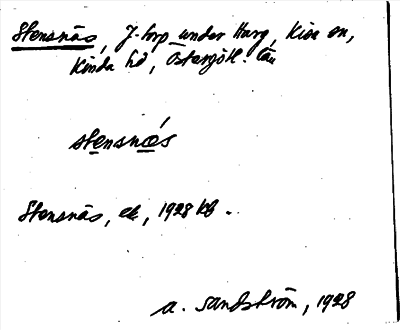 Stensnäs, J-torp under Harg, Kisa sn,
Kinda hd, Östergötl. län
stensnæ̀s
Stensnäs, ek, 1928 kb.
A. Sandström, 1928